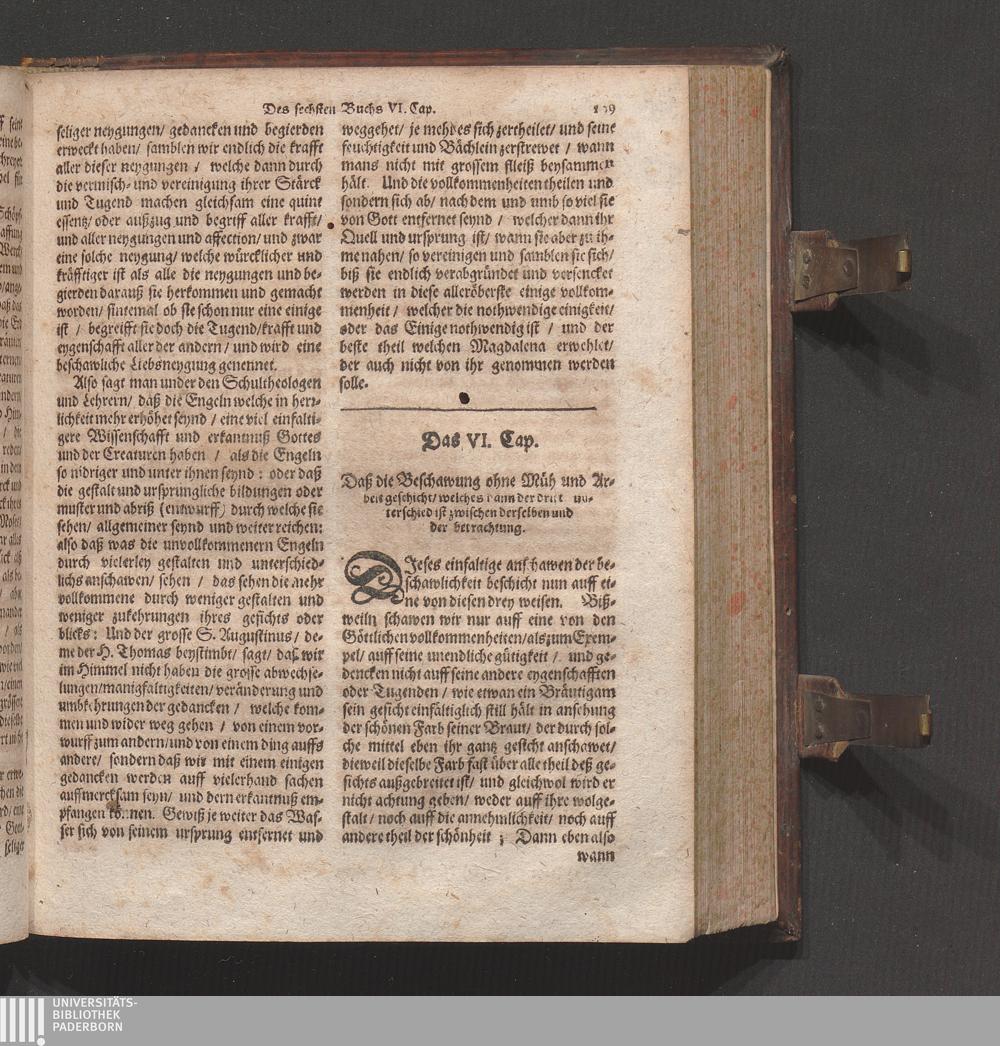 Des sechsten Buchs VI. Cap.
seliger neygungen / gedancken und begierden
erweckt haben / samblen wir endlich die krafft
aller dieser neygungen / welche dann durch
die vermisch- und vereinigung ihrer Stärck
und Tugend machen gleichsam eine quint
essentz / oder außzug und begriff aller krafft /
und aller neygungen und affection / und zwar
eine solche neygung / welche würcklicher und
kräfftiger ist als alle die neygungen und be-
gierden darauß sie herkommen und gemacht
worden / sintemal ob sie schon nur eine einige
ist / begreifft sie doch die Tugend / krafft und
eygenschafft aller der andern / und wird eine
beschawliche Liebsneygung genennet.
Also sagt man under den Schultheologen
und Lehrern / daß die Engeln welche in herr-
lichkeit mehr erhöhet seynd / eine viel einfalti-
gere Wissenschafft und erkantnuß Gottes
und der Creaturen haben / als die Engeln
so nidriger und unter ihnen seynd : oder daß
die gestalt und ursprungliche bildungen oder
muster und abriß (entwurff) durch welche sie
sehen / allgemeiner seynd und weiter reichen:
also daß was die unvollkommenern Engeln
durch vielerley gestalten und unterschied-
lichs anschawen / sehen / das sehen die mehr
vollkommene durch weniger gestalten und
weniger zukehrungen ihres gesichts oder
blicks : Und der grosse S. Augustinus / de-
me der H. Thomas beystimbt / sagt / daß wir
im Himmel nicht haben die grosse abwechse-
lungen / manigfaltigkeiten / veränderung und
umbkehrungen der gedancken / welche kom-
men und wider weg gehen / von einem vor-
wurff zum andern / und von einem ding auffs
andere / sondern daß wir mit einem einigen
gedancken werden auff vielerhand sachen
auffmercksam seyn / und dern erkantnuß em-
pfangen können. Gewiß je weiter das Was-
ser sich von seinem ursprung entfernet und
weggehet / je mehr es sich zertheilet / und seine
feuchtigkeit und Bächlein zerstrewet / wann
mans nicht mit grossem fleiß beysammen
hält. Und die vollkommenheiten theilen und
sondern sich ab / nach dem und umb so viel sie
von Gott entfernet seynd / welcher dann ihr
Quell und ursprung ist / wann sie aber zu ih-
me nahen / so vereinigen und samblen sie sich /
biß sie endlich verabgründet und versencket
werden in diese alleröberste einige vollkom-
menheit / welcher die nothwendige einigkeit /
oder das Einige nothwendig ist / und der
beste theil welchen Magdalena erwehlet /
der auch nicht von ihr genommen werden
solle.
Das VI. Cap.
Daß die Beschawung ohne Müh und Ar-
beit geschicht / welches dann der dritt un-
terschied ist zwischen derselben und
der betrachtung.
DJeses einfaltige anschawen der be-
schawlichkeit beschicht nun auff ei-
ne von diesen drey weisen. Biß-
weiln schawen wir nur auff eine von den
Göttlichen vollkommenheiten / als zum Exem-
pel / auff seine unendliche gütigkeit / und ge-
dencken nicht auff seine andere eygenschafften
oder Tugenden / wie etwan ein Bräutigam
sein gesicht einfältiglich still hält in ansehung
der schönen Farb seiner Braut / der durch sol-
che mittel eben ihr gantz gesicht anschawet /
dieweil dieselbe Farb fast über alle theil deß ge-
sichts außgebreitet ist / und gleichwol wird er
nicht achtung geben / weder auff ihre wolge-
stalt / noch auff die annehmlichkeit / noch auff
andere theil der schönheit ; Dann eben also
wann
UNIVERSITÄTS-
BIBLIOTHEK
PADERBORN